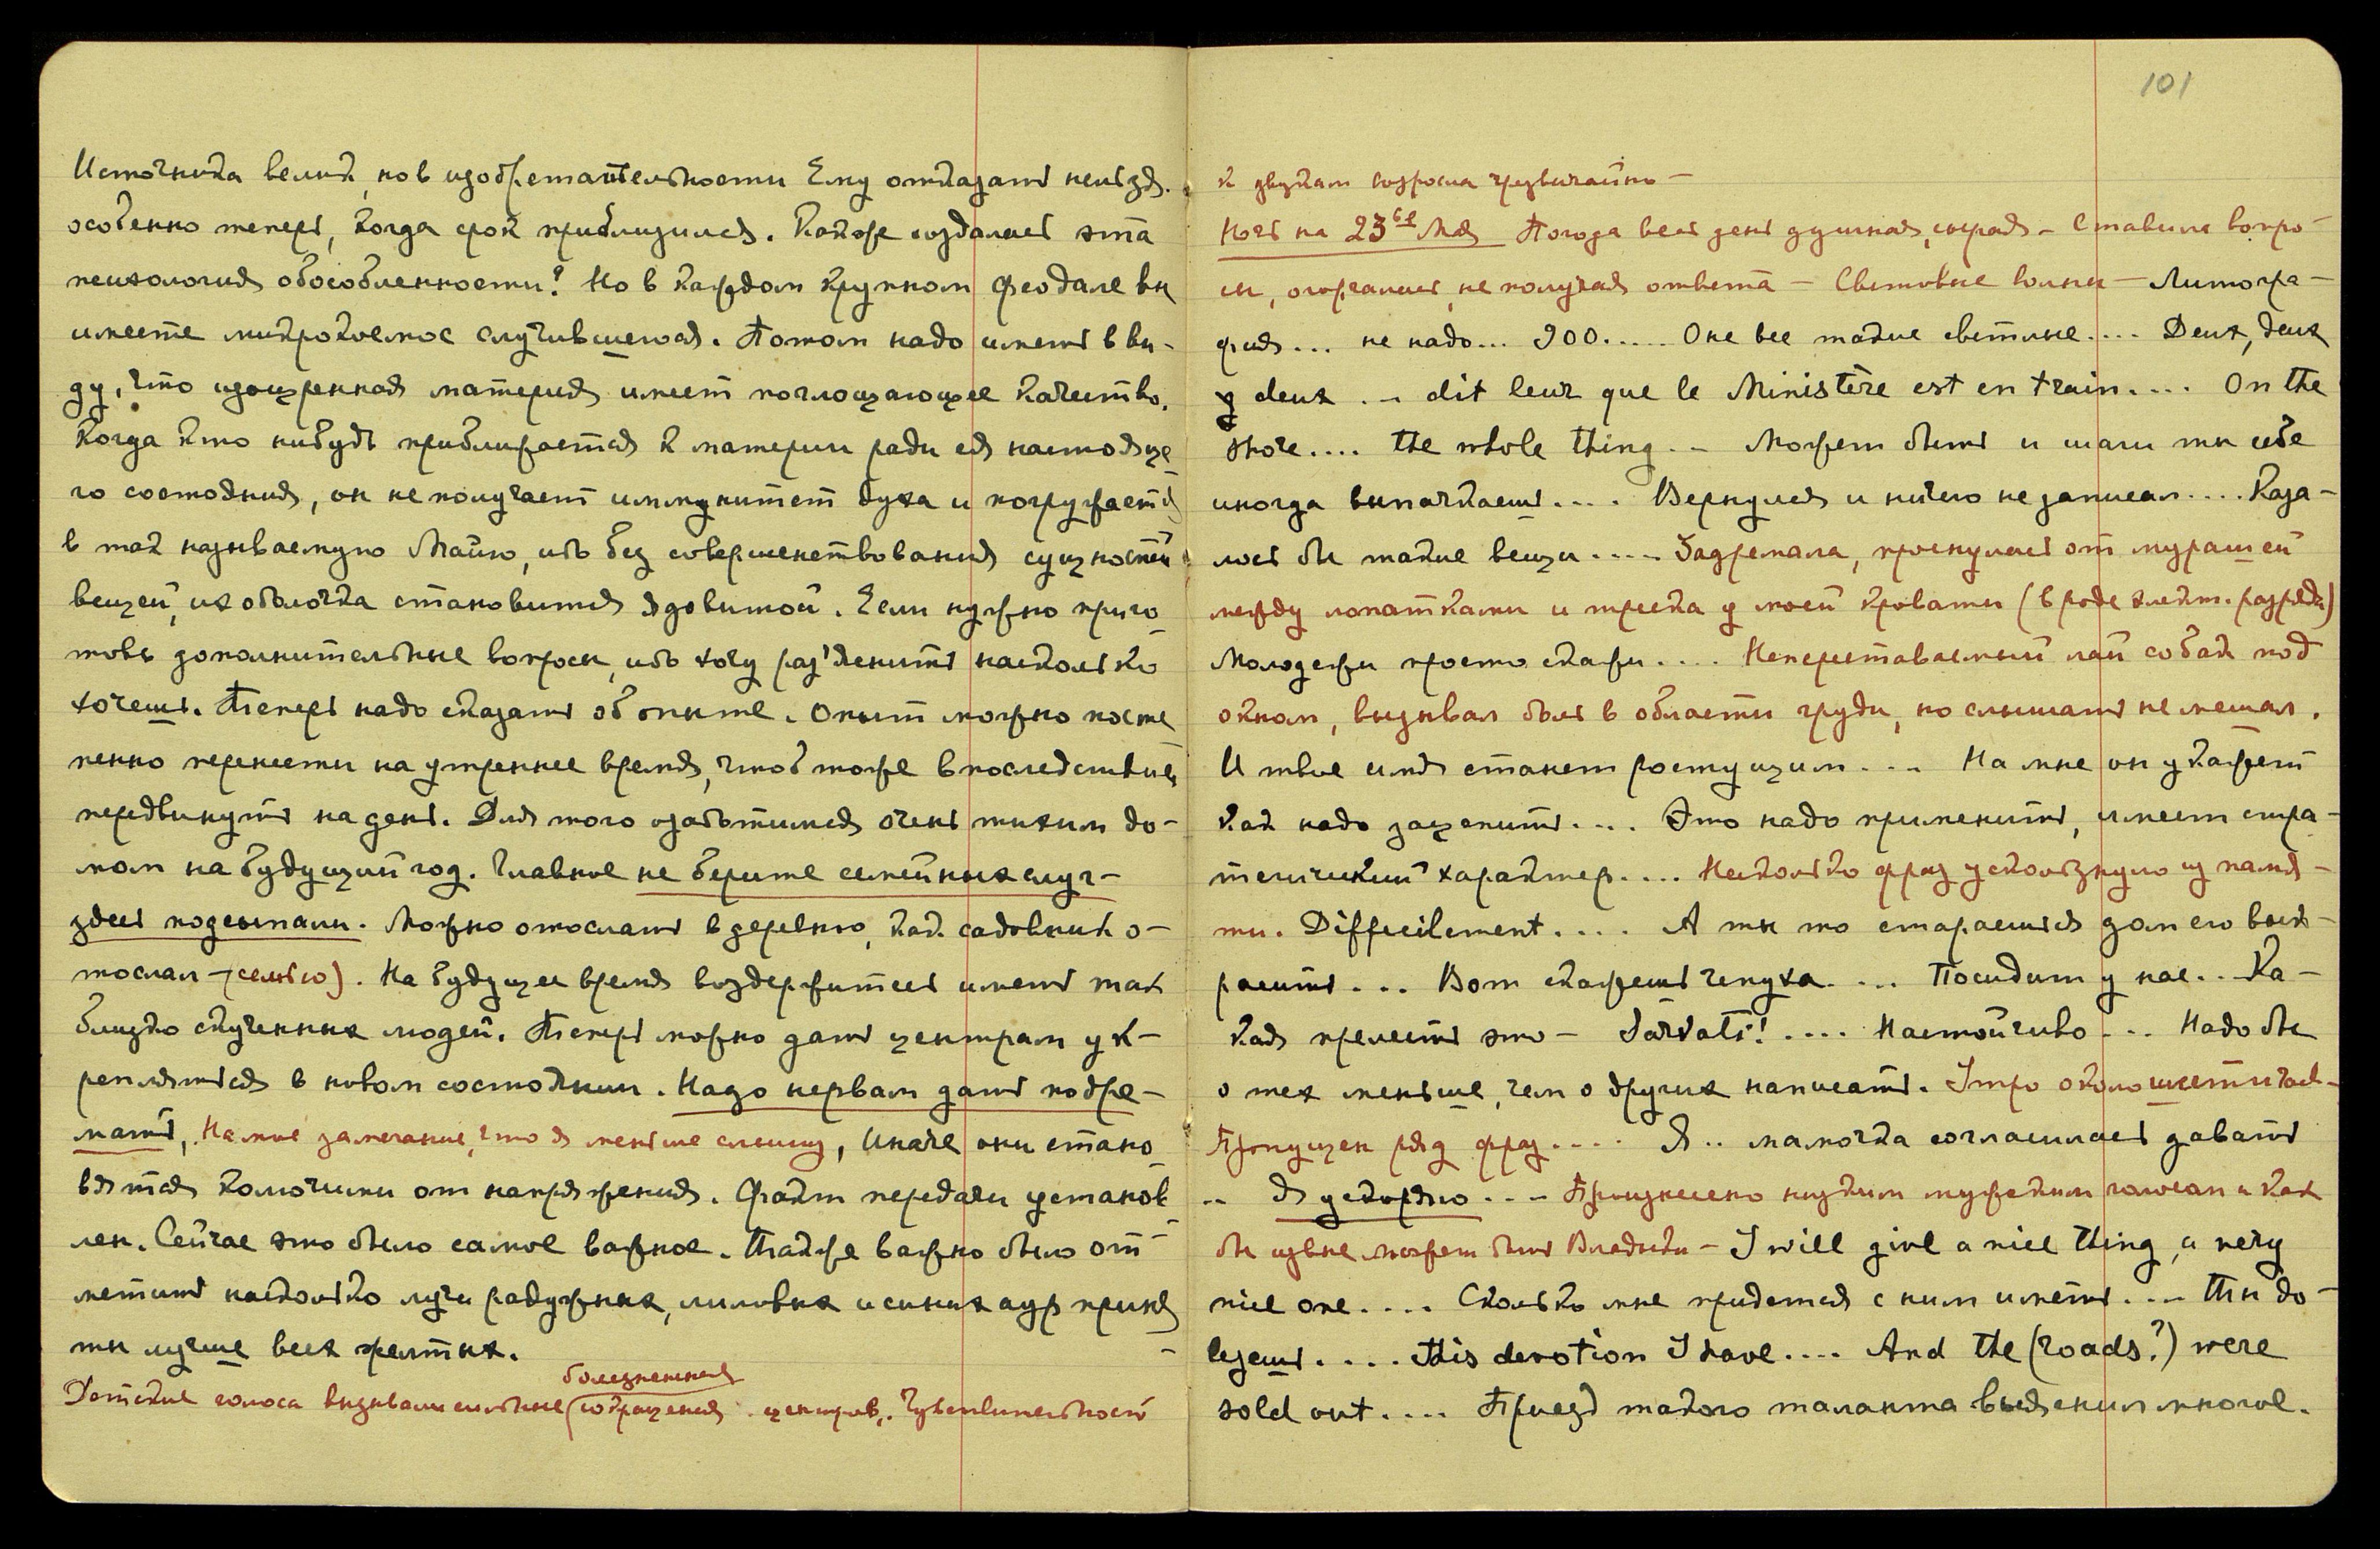 Источника велик, но в изобретательности Ему отказать нельзя.
особенно теперь, когда срок приблизился. Как же создалась эта
психология обособленности? Но в каждом крупном феодале вы
имеете микрокосмос случившегося. Потом надо иметь в ви-
ду, что изощренная материя имеет поглощающее качество.
Когда кто нибудь приближается к материи ради ея настояще-
го состояния, он не получает иммунитет духа и погружается
в так называемую Майю, ибо без совершенствования сущностей
вещей, их оболочка становится ядовитой. Если нужно приго-
товь дополнительные вопросы, ибо хочу раз'яснить насколько
хочешь. Теперь надо сказать об опыте. Опыт можно посте-
пенно перенести на утреннее время, чтоб тоже впоследствие
передвинуть на день. Для того озаботимся очень тихим до-
мом на будущий год. Главное не берите семейных слуг-
здесь подсыпали. Можно отослать в деревню, как садовник о-
тослал - (семью). На будущее время воздержитесь иметь так
близко скученных людей. Теперь можно дать центрам ук-
репляться в новом состоянии. Надо нервам дать подре-
мать, На мое замечание, что я меньше слышу, Иначе они стано-
вятся колючими от напряжения. Факт передачи установ-
лен. Сейчас это было самое важное. Также важно было от-
метить насколько лучи радужных, лиловых и синих аур приня-
ты лучше всех желтых.
болезненныя
Детские голоса вызывали сильные (сокращения центров. Чувствительность
101
к звукам возросла чрезвычайно -
Ночь на 23ье Мая Погода весь день душная, сырая - Ставила вопро-
сы, огорчалась, не получая ответа - Световые волны - Литогра-
фия... не надо... 900..... Оне все такие светлые.... Deux, deux
y deux .. - dit leur que le Ministère est en train.... On the
shore.... the whole thing .. - Может быть и шаги ты себе
иногда выпачкаешь.... Вернулся и ничего не записал.... Каза-
лось бы такие вещи.... Задремала, проснулась от мурашей
между лопатками и треска у моей кровати (в роде электр. разряда)
Молодежи просто скажи.... Непереставаемый лай собак под
окном, вызывал боль в области груди, но слышать не мешал.
И твое имя станет растущим... На мне он укажет
как надо зацепить.... Это надо применить, имеет стра-
тегический характер.... Несколько фраз ускользнуло из памя-
ти. Difficilement.... А ты то стараешься дом его вык-
расить... Вот скажешь чепуха.... Посидит у нас.. Ка-
кая прелесть это - !.... Настойчиво ... Надо бы
о тех меньше, чем о других написать. Утро около шести час-
Пропущен ряд фраз.... Я.. мамочка согласилась давать
.. Я ускоряю.... Произнесено низким мужским голосом и как
бы извне может быть Владыки - I will give a nice thing, a very
nice one.... Сколько мне придется с ним иметь.... Ты до-
лезешь.... This devotion I have.... And the (roads?) were
sold out.... Приезд такого таланта выяснил многое.